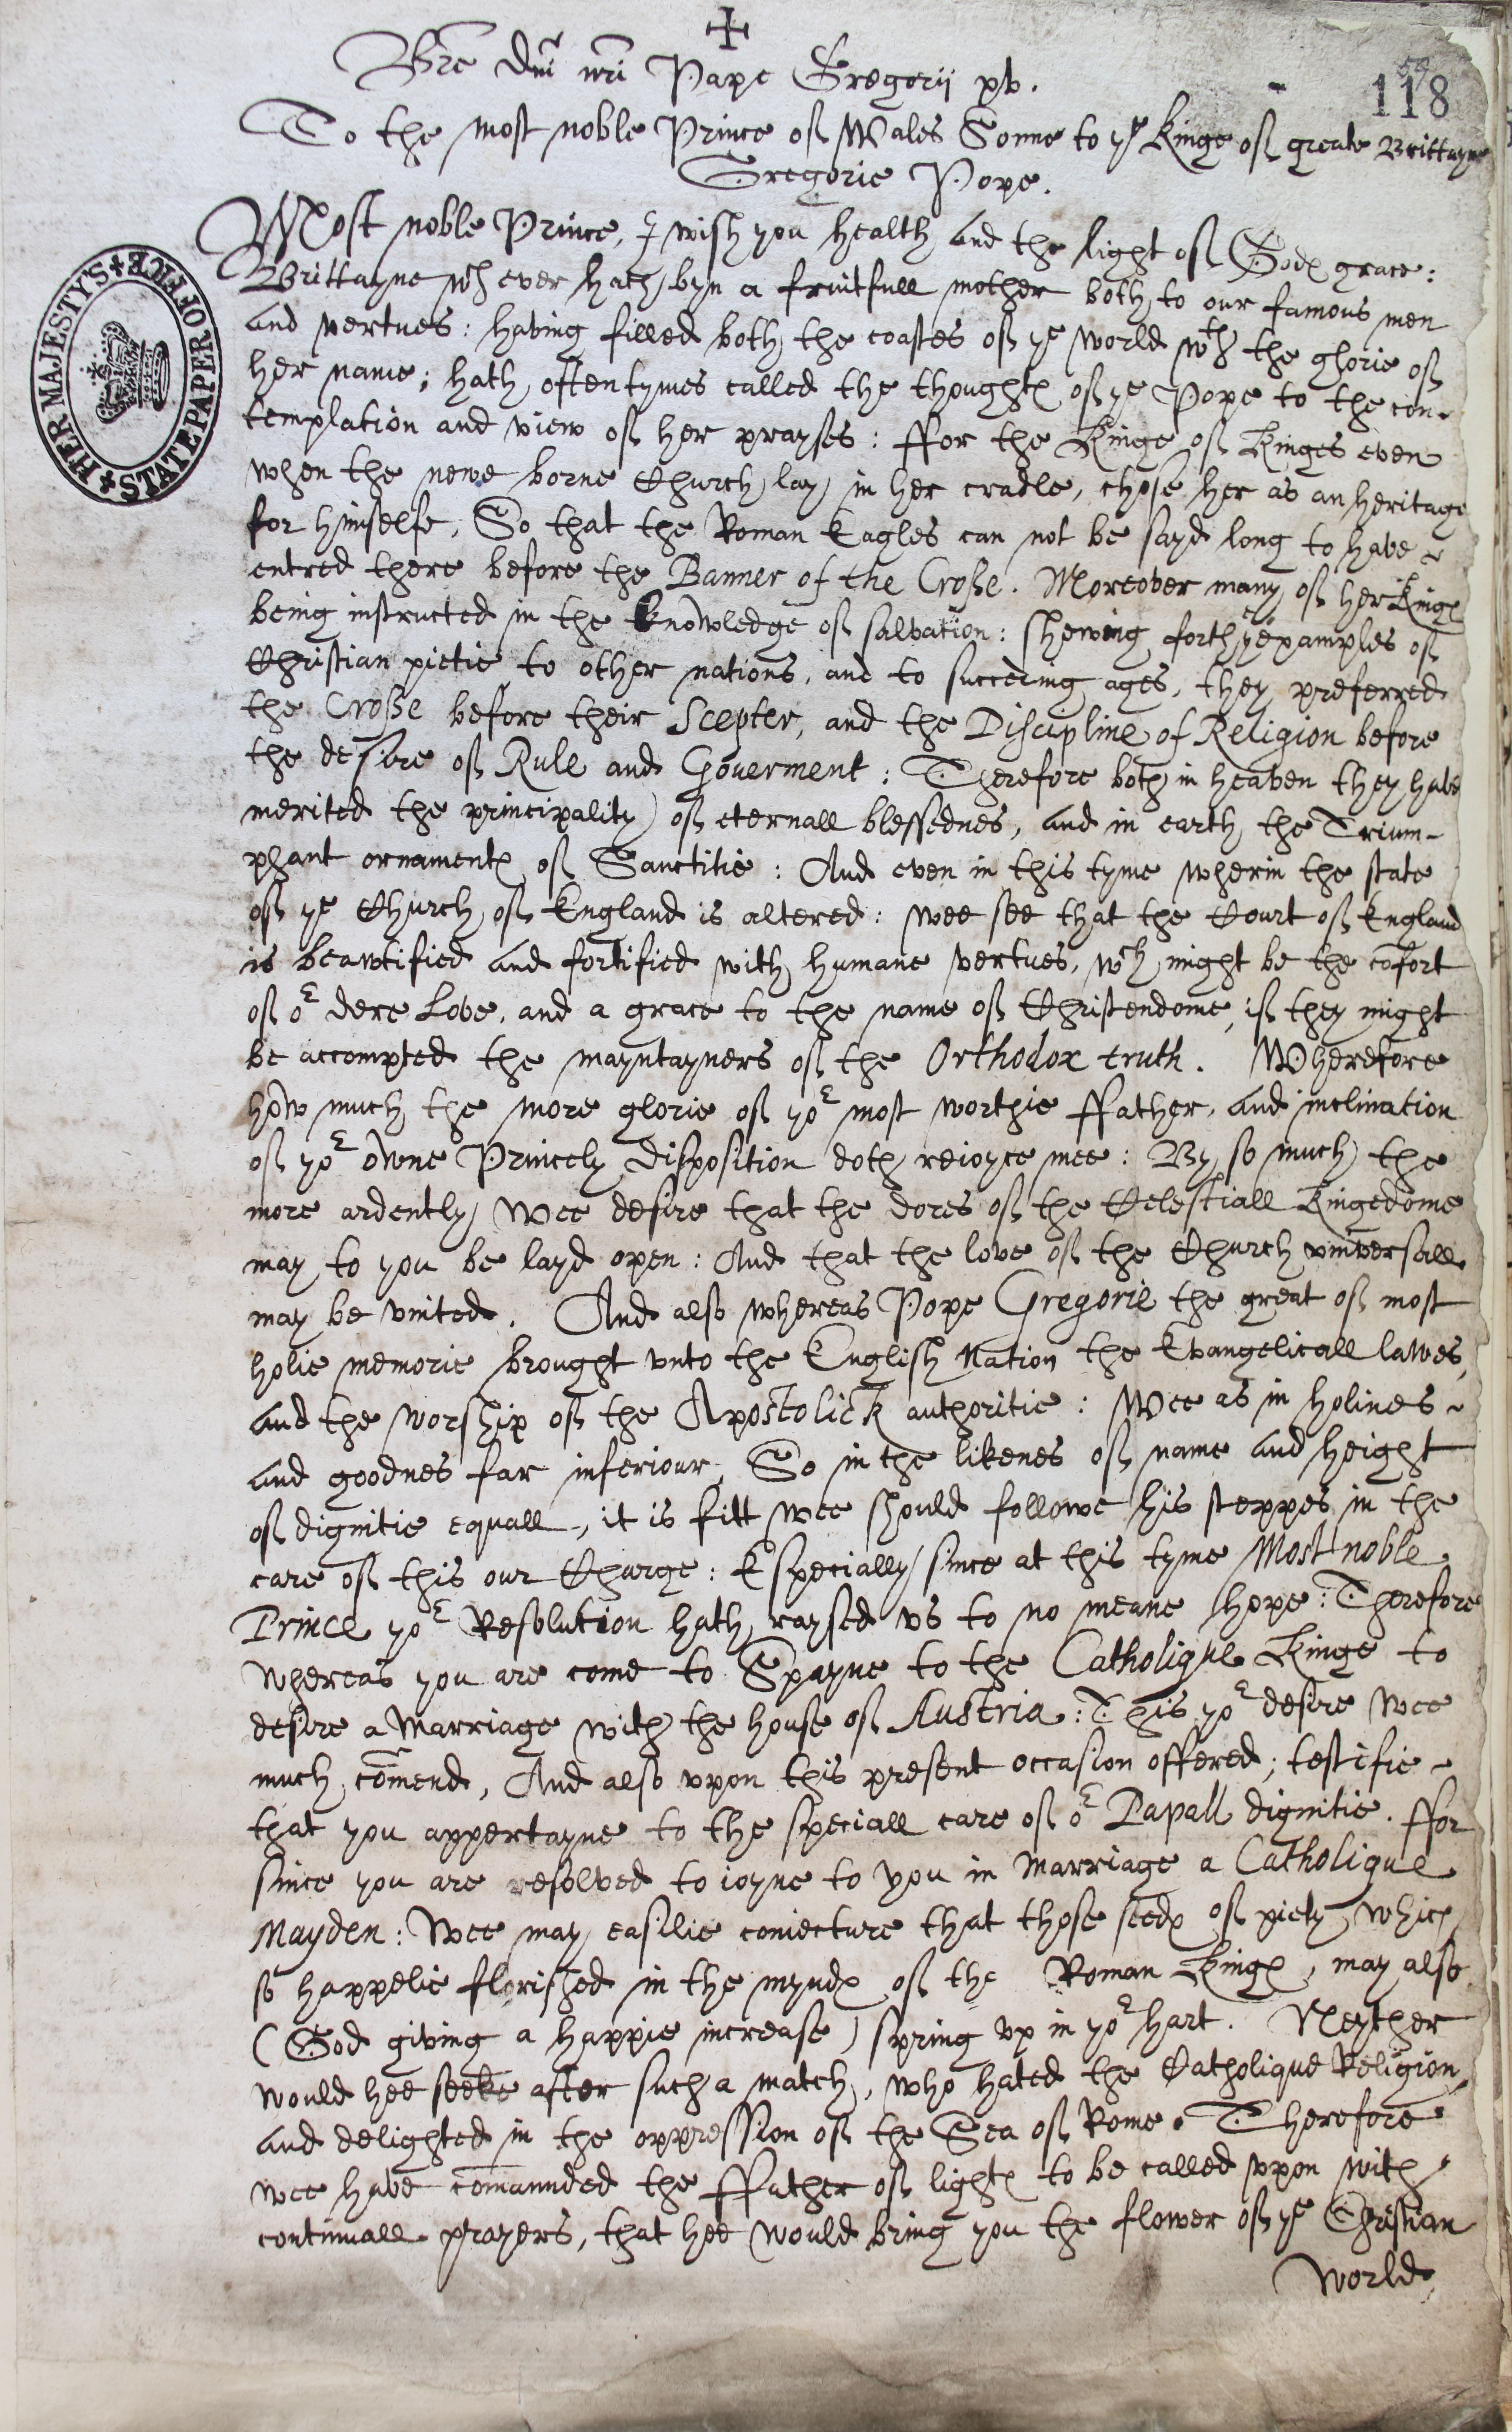 +
Bre Dni nri Pape Gregorij xv.
118
59
To the most noble Prince of Wales Sonne to ye Kinge of greate Brittayne
Gregorie Pope.
Most noble Prince, I wish you health and the light of Gods grace:
Brittayne wch ever hath byn a fruitfull mother both to our famous men
and vertues: having filled both the coastes of ye world wth the glorie of
her name; hath oftentymes called the thoughts of ye Pope to the con-
templation and view of her prayses: ffor the Kinge of Kinges even
when the newe borne Church lay in her cradle, chose her as an heritage
for himselfe, So that the Roman Eagles can not be sayd long to have
entred there before the Banner of the Crosse. Moreover many of her Kings
being instructed in the knowledge of salvation: shewing forth ye examples of
Christian pietie to other nations, and to succeding ages, they preferred
the Crosse before their Scepter, and the Discipline of Religion before
the desire of Rule and Gouerment: Therefore both in heaven they have
merited the principality of eternall blessednes, and in earth the Trium-
phant ornaments of Sanctitie: And even in this tyme wherin the state
of ye Church of England is altered: wee see that the Court of England
is beawtified and fortified with humane vertues, wch might be the cōfort
of or dere Love, and a grace to the name of Christendome, if they might
be accompted the mayntayners of the Orthodox truth. Wherefore
how much the more glorie of yor most worthie ffather, and inclination
of yor owne Princely disposition doth reioyce mee: By so much the
more ardently wee desire that the dores of the Celestiall Kingedome
may to you be layd open: And that the love of the Church vniversall
may be vnited. And also whereas Pope Gregorie the great of most
holie memorie brought vnto the English Nation the Evangelicall lawes,
and the worship of the Apostolick authoritie: Wee as in holines
and goodnes far inferiour, So in the likenes of name and height
of dignitie equall, it is fitt wee should followe his steppes in the
care of this our Charge: Especially since at this tyme Most noble
Prince yor Resolution hath raysed vs to no meane hope: Therefore
whereas you are come to Spayne to the Catholique Kinge to
desire a Marriage with the house of Austria: This yor desire wee
much cōmend, And also vpon this present occasion offered; testifie
that you appertayne to the speciall care of or Papall dignitie. ffor
since you are resolved to ioyne to you in Marriage a Catholique
Mayden: Wee may easilie coniecture that those seeds of piety which
so happelie florished in the mynds of the Roman Kings, may also
(God giving a happie increase) spring vp in yor hart. Neyther
would hee seeke after such a match, who hated the Catholique Religion,
and delighted in the oppression of the Sea of Rome. Therefore
wee have comaunded the ffather of lights to be called vpon with
continuall prayers, that hee would bring you the flower of ye Christian
World
HER MAJESTY'S STATE PAPER OFFICE